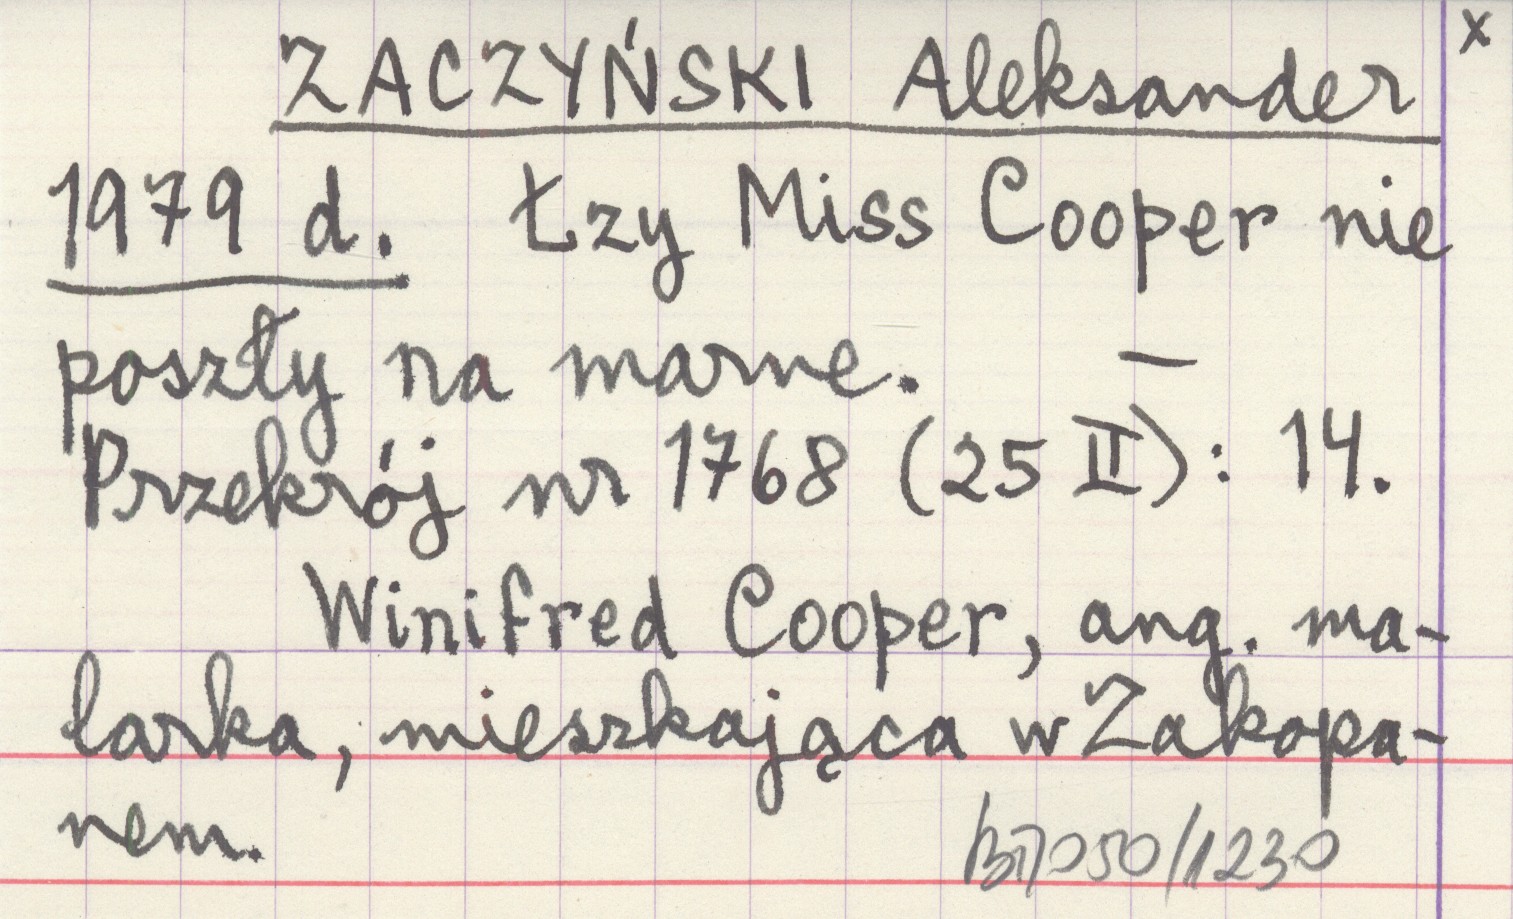 x
ZACZYŃSKI Aleksander
1979 d. Łzy Miss Cooper nie
poszły na marne. —
Przekrój nr 1768 (25 II): 14.
Winifred Cooper, ang. ma-
larka, mieszkająca w Zakopa-
nem.
050/1230